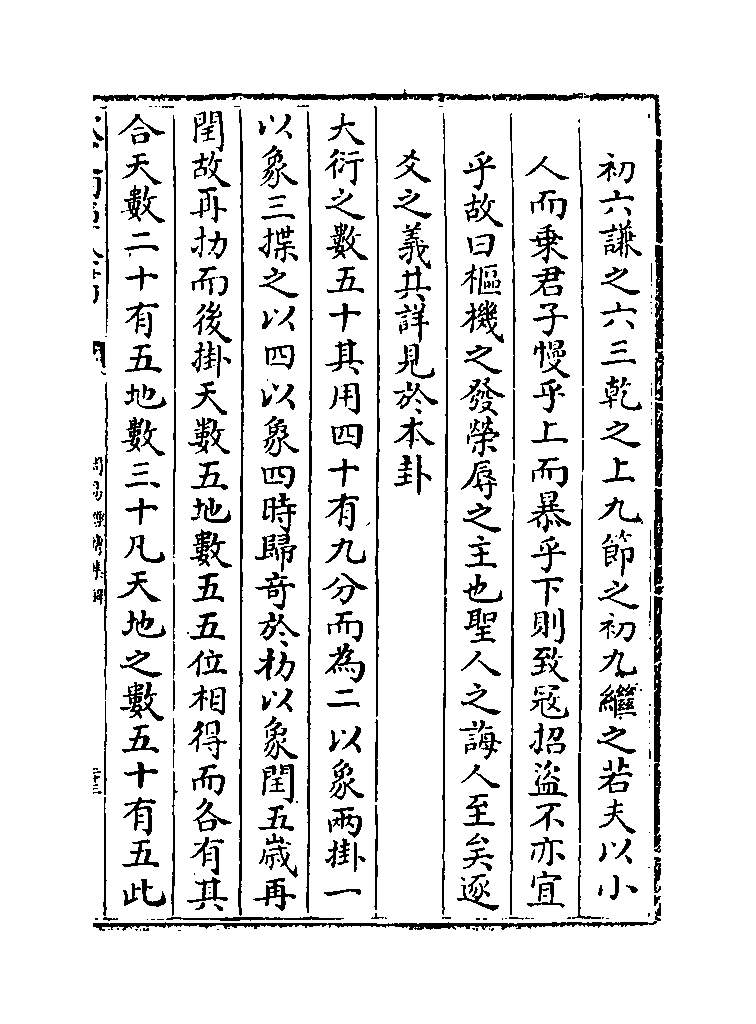 初六謙之六三乾之上九節之初九繼之若夫以小
人而乗君子慢乎上而暴乎下則致寇招盗不亦宜
乎故曰樞機之發榮辱之主也聖人之誨人至矣逐
爻之義其詳見於本卦
大衍之數五十其用四十有九分而為二以象兩掛一
以象三揲之以四以象四時歸奇於扐以象閏五歳再
閏故再扐而後掛天數五地數五五位相得而各有其
合天數二十有五地數三十凡天地之數五十有五此